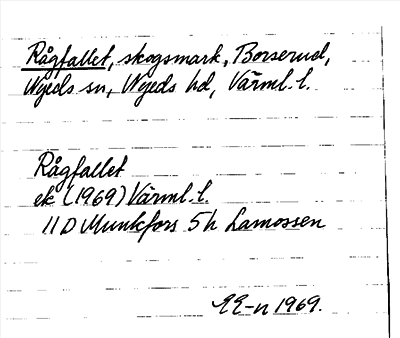 Rågfallet, skogsmark, Borserud,
Nyeds sn, Nyeds hd, Värml. l.
Rågfallet
ek (1969) Värml. l.
11D Munkfors 5h Lamossen
EE-n 1969.